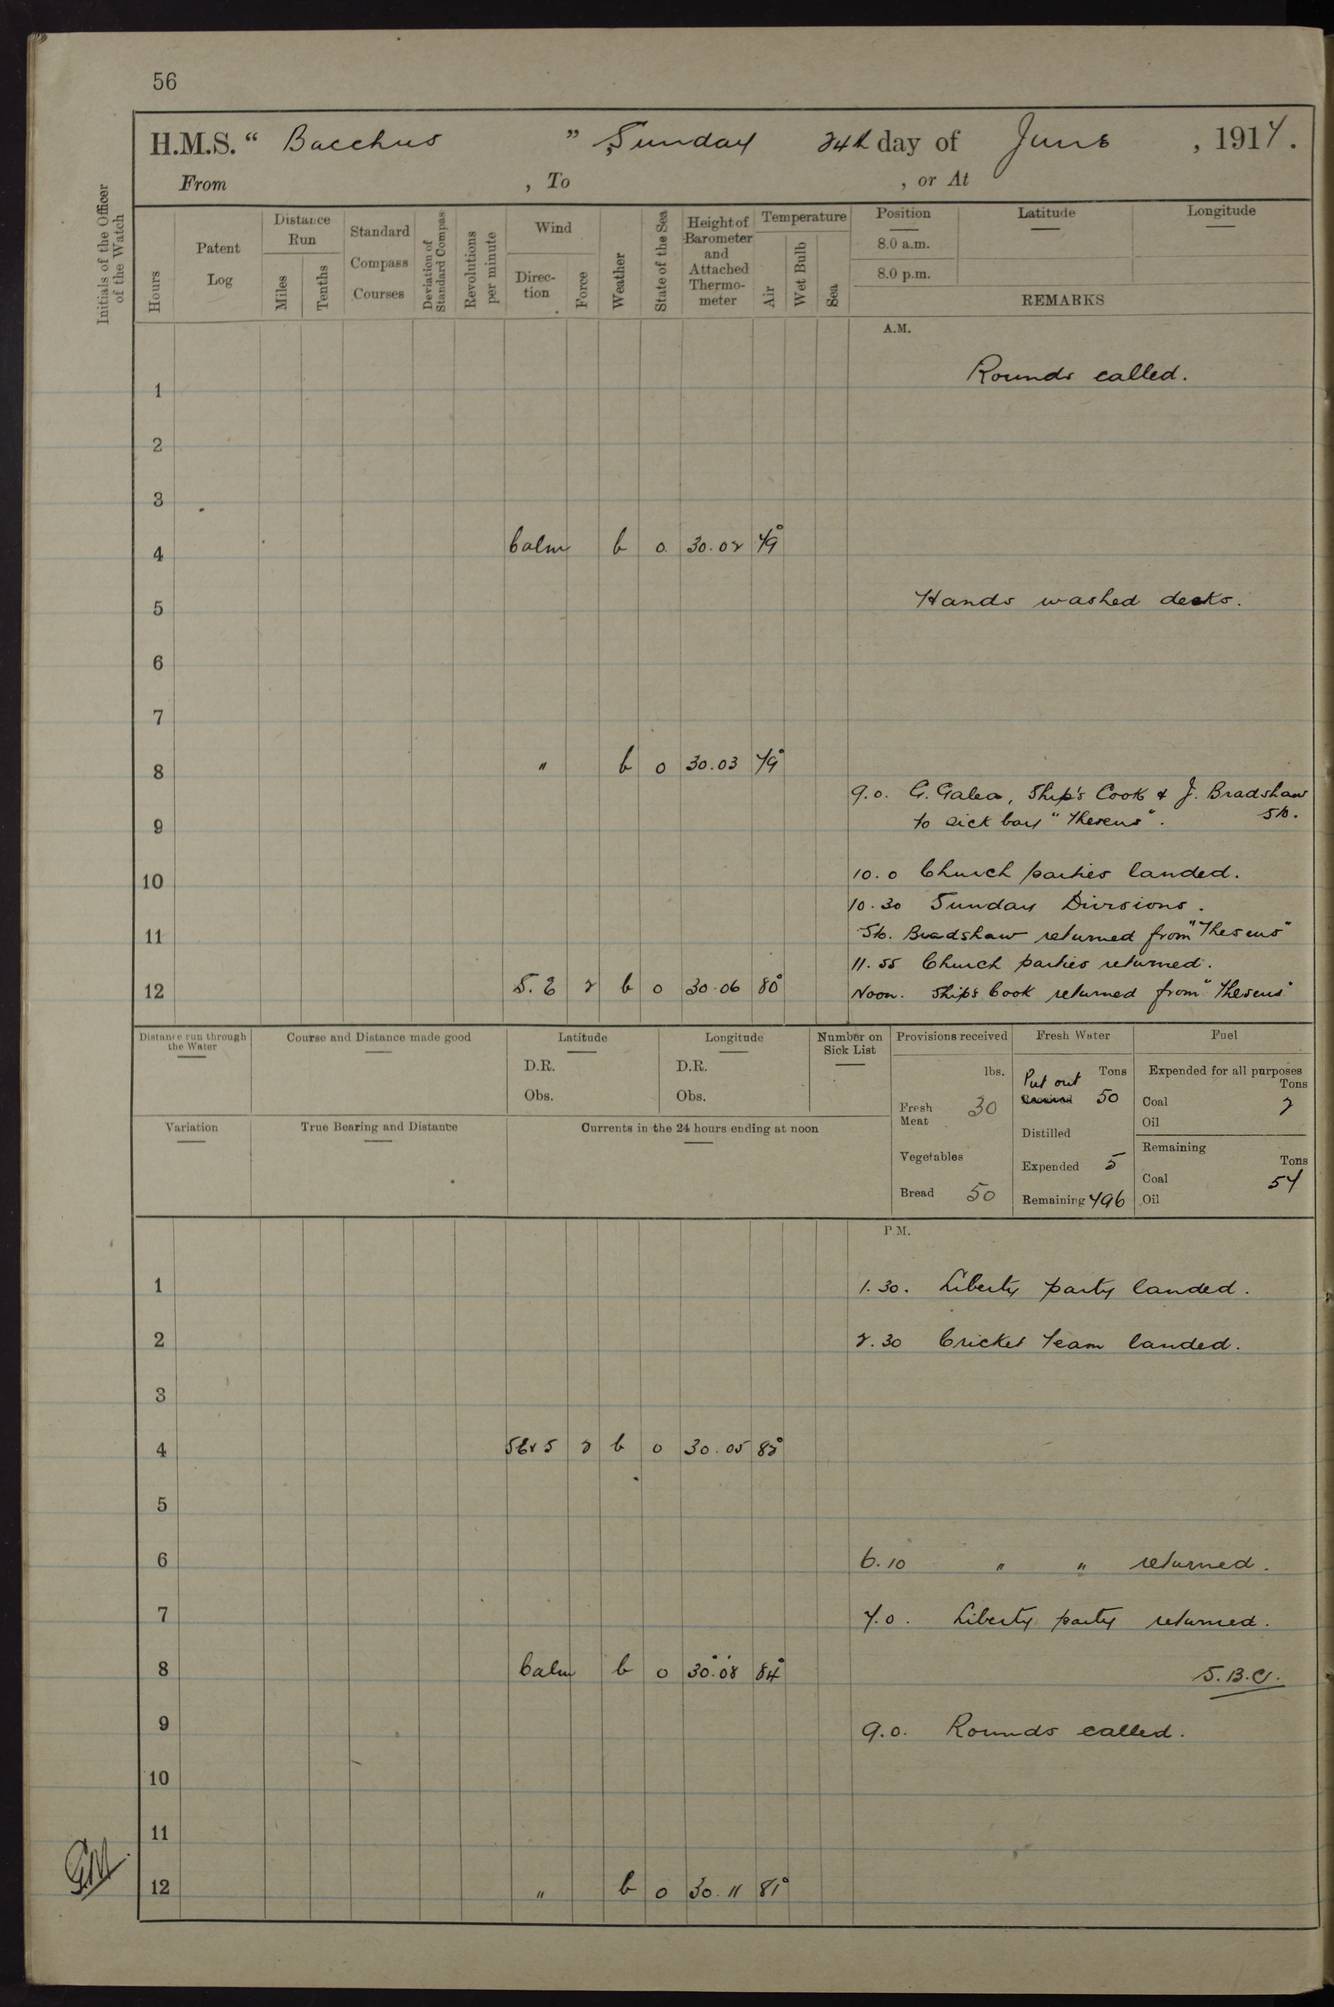 56
H.M.S. " Bacchus " Sunday 24th day of June , 1917.
From , To , or At
Initials of the Officer of the Watch
Hours
Patent Log
Distance Run
Miles
Tenths
Standard Compass Courses
Deviation of Standard Compass
Revolutions per minute
Wind
Direction
Force
Weather
State of the Sea
Height of Barometer and Attached Thermometer
Temperature
Air
Wet Bulb
Sea
Position Latitude Longitude
8.0 a.m.
8.0 p.m.
REMARKS
A.M.
Rounds called.
1
2
3
4 Calm b 0 30.02 79°
5 Hands washed decks.
6
7
8 " b 0 30.03 79°
9.0. G. Galea, Ship's Cook & J. Bradshaw Sto.
9 to sick bay "Theseus".
10 10.0 Church parties landed.
10.30 Sunday Divisions.
11 Sto. Bradshaw returned from "Theseus"
11.55 Church parties returned.
12 S.E 2 b 0 30.06 80° Noon. Ship's Cook returned from "Theseus"
Distance run through the Water
Course and Distance made good
Latitude
D.R.
Obs.
Longitude
D.R.
Obs.
Number on Sick List
Provisions received
lbs.
Fresh Meat 30
Vegetables
Bread 50
Fresh Water
Tons
Put out 50
Received
Distilled
Expended 5
Remaining 496
Fuel
Expended for all purposes
Tons
Coal 2
Oil
Remaining
Tons
Coal 57
Oil
Variation
True Bearing and Distance
Currents in the 24 hours ending at noon
P.M.
1 1.30. Liberty party landed.
2 2.30 Cricket Team landed.
3
4 SExS 2 b 0 30.05 82°
5
6 6.10 " " returned.
7 7.0. Liberty party returned.
8 Calm b 0 30.08 84° S.B.C.
9 9.0. Rounds called.
10
11
12 " b 0 30.11 81°
GM